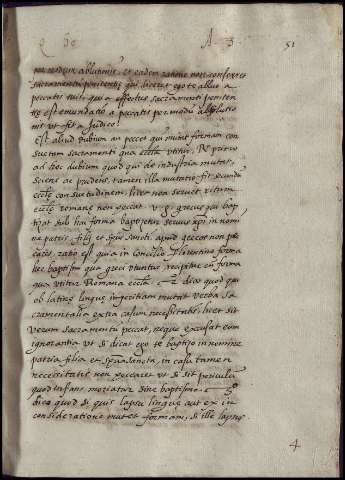 A 3. 51
per modum ablutionis, et eadem ratione non conferres
sacramentũ penitentie qui diceret ego te abluo a
peccatis tuis, quia effectus sacramenti peniten
tie est emundatio a peccatis per modũ absolutio
nis ut fit a Judice.
Est aliud dubium an peccet qui mutet formam con
suetam sacramenti qua eccla utitur. Rº primo
ad hoc dubium quod qui de industria mutat,
sciens ac prudens, tamet illa mutatio fit secundũ
eccle consuetudinem, si ver non servet ritum
eccle romane non peccat. v. g. grecus qui bap
tizat sub hac forma baptizetur servus xpi in nomi
ne patris, filij et spũs sancti. apud grecos non pec
cat, ratio est quia in Concilio Florentino forma
hec baptismi qua greci utuntur, recipitur ut forma
qua utitur Romana eccla. 2º dico quod qui
ob latine lingue imperitiam mutat verba sa
cramentalia extra casum necessitatis, licet sit
verum sacramentũ peccat, neque excusat eum
ignorantia ut si dicat ego te baptizo in nomine
patria filia et spũa sancta, in casu tamen
necessitatis non peccaret ut si sit periculũ
quod infans moriatur sine baptismo. 3º
dico quod si quis lapsu lingue aut ex in
consideratione mutet formam, si ille lapsus
4